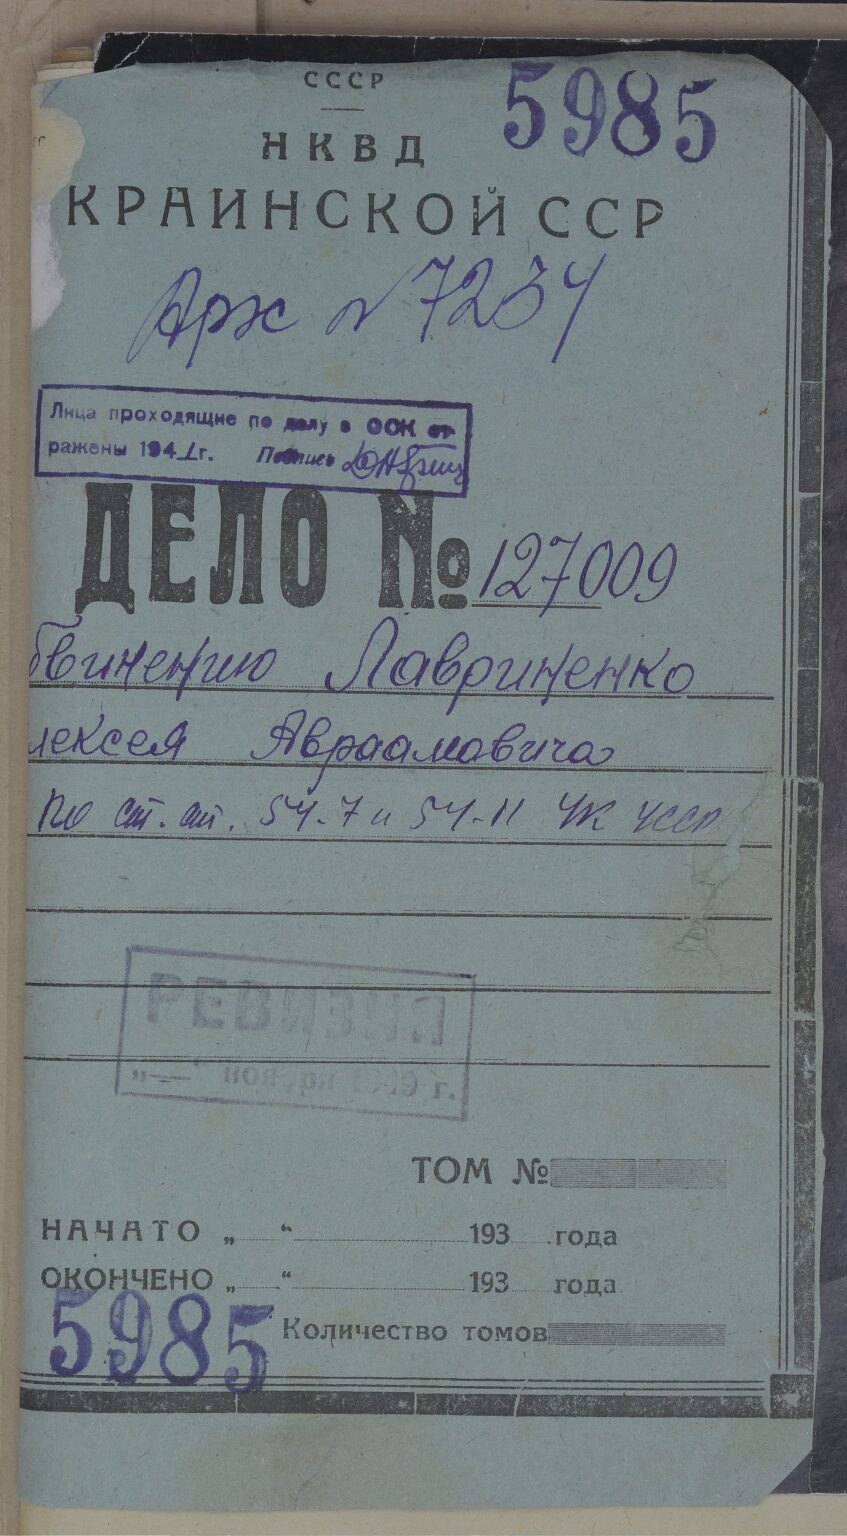 СССР
5985
НКВД
КРАИНСКОЙ ССР
Арх N 7234
Лица проходящие по делу в ООК от-
ражены 1941 г. Подпись
ДЕЛО № 127009
бвинению Лавриненко
лексея Авраамовича
по ст. ст. 54-7 и 54-11 УК УССР
РЕВИЗИЯ
„—“ ноября 1949 г.
ТОМ №
НАЧАТО „ “ 193 года
ОКОНЧЕНО „ “ 193 года
5985
Количество томов